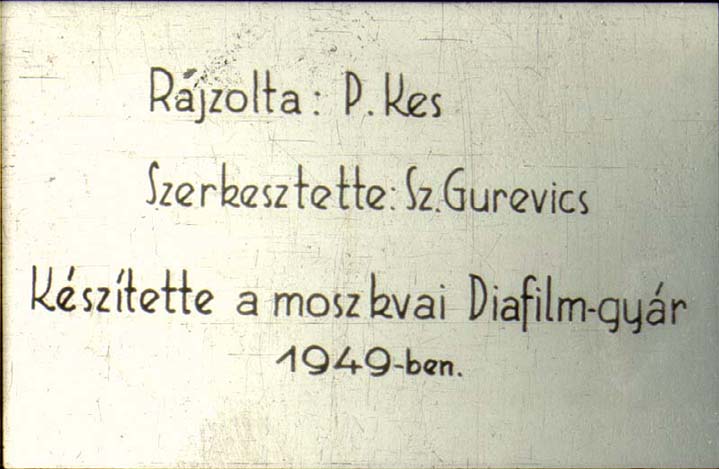 Rajzolta: P. Kes
Szerkesztette: Sz. Gurevics
Készítette a moszkvai Diafilm-gyár
1949-ben.